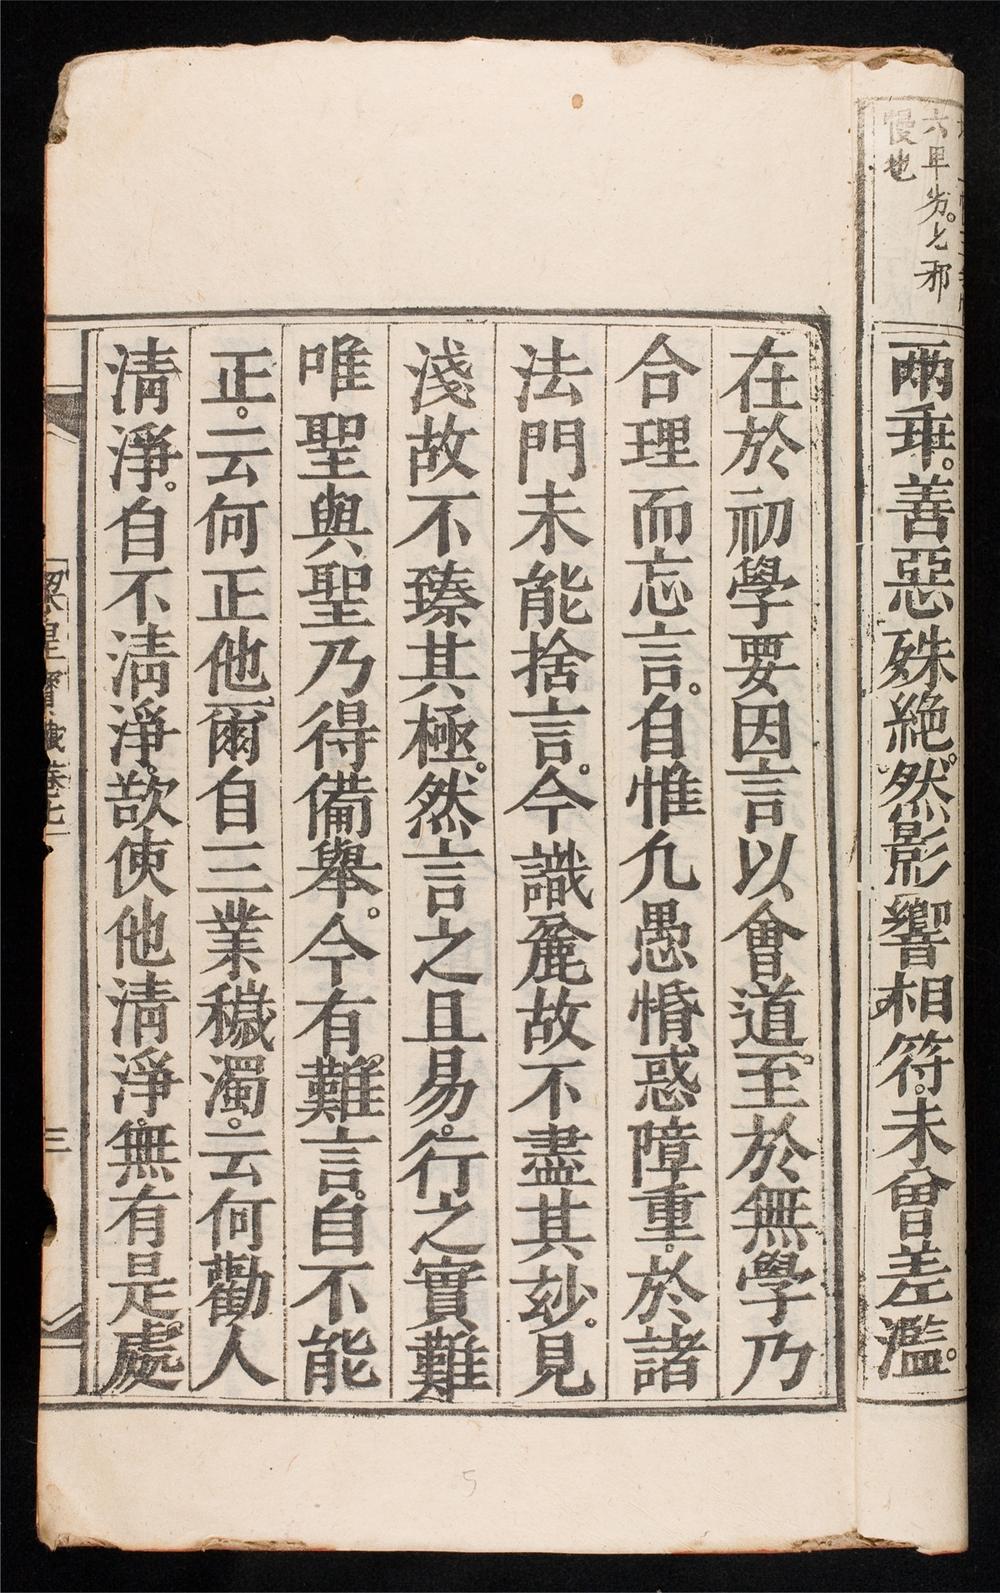 六卑劣七邪
慢也
兩乖。善惡殊絕。然影響相符。未曾差濫。
在於初學要因言以會道。至於無學乃
合理而忘言。自惟凡愚惛惑障重。於諸
法門未能捨言。今識麁故不盡其玅。見
淺故不臻其極。然言之且易。行之實難
唯聖與聖乃得備舉。今有難言。自不能
正。云何正他。爾自三業穢濁。云何勸人
清淨。自不清淨。欲使他清淨。無有是處。
梁皇寶懺卷七
三
5